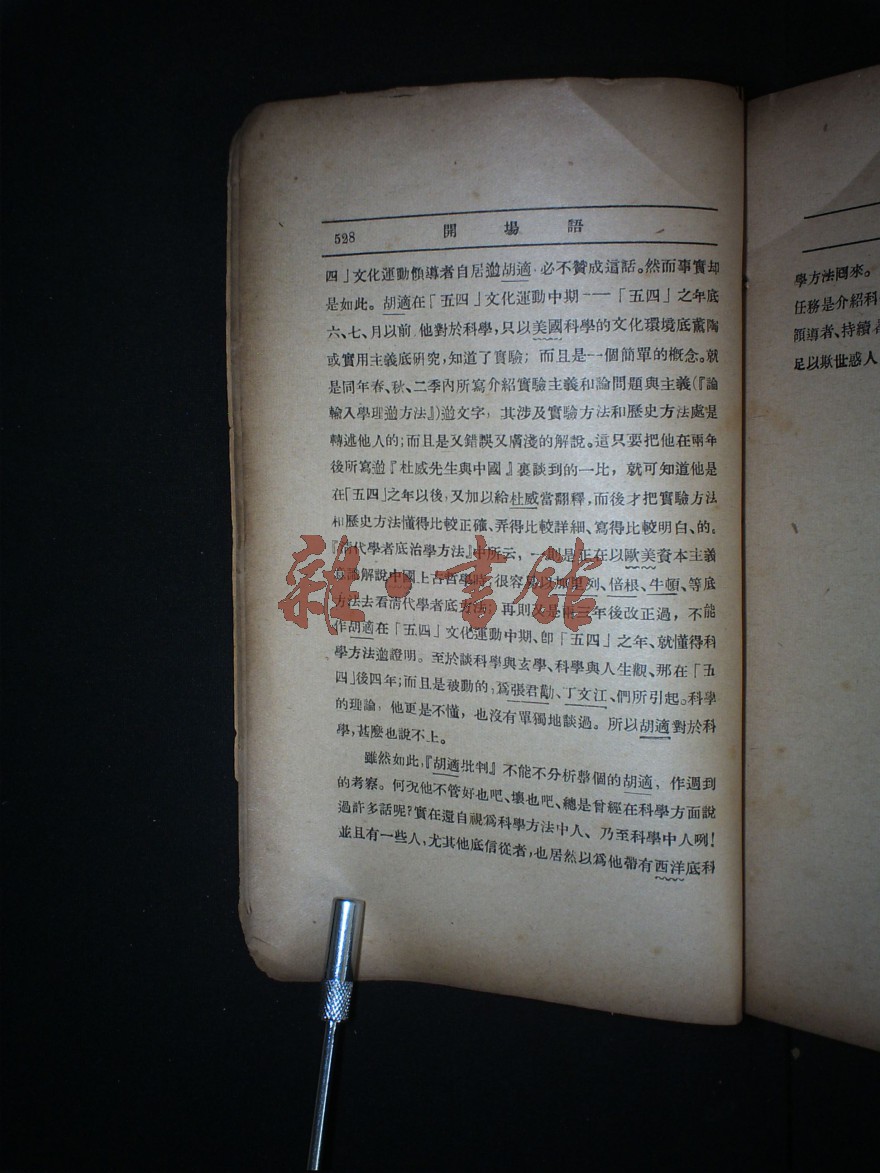 528 開場語
四」文化運動領導者自居邎胡適,必不贊成這話。然而事實却
是如此。胡適在「五四」文化運動中期——「五四」之年底
六、七、月以前,他對於科學,只以美國科學的文化環境底薰陶
或實用主義底研究,知道了實驗;而且是一個簡單的概念。就
是同年春、秋、二季內所寫介紹實驗主義和論問題與主義(『論
輸入學理邎方法』)邎文字,其涉及實驗方法和歷史方法處是
轉述他人的;而且是又錯誤又膚淺的解說。這只要把他在兩年
後所寫邎『杜威先生與中國』裏談到的一比,就可知道他是
在「五四」之年以後,又加以給杜威當翻釋,而後才把實驗方法
和歷史方法懂得比較正確、弄得比較詳細、寫得比較明白、的。
『清代學者底治學方法』中所云,一則是正在以歐美資本主義
意識解說中國上古哲學時,很容易以加里列、倍根、牛頓、等底
方法去看清代學者底方法;再則及是兩三年後改正過,不能
作胡適在「五四」文化運動中期、卽「五四」之年、就懂得科
學方法邎證明。至於談科學與玄學、科學與人生觀、那在「五
四」後四年;而且是被動的,爲張君勱、丁文江、們所引起。科學
的理論,他更是不懂,也沒有單獨地談過。所以胡適對於科
學,甚麼也說不上。
雖然如此,『胡適批判』不能不分析整個的胡適,作週到
的考察。何况他不管好也吧、壞也吧、總是曾經在科學方面說
過許多話呢?實在還自視爲科學方法中人、乃至科學中人咧!
並且有一些人,尤其他底信從者,也居然以爲他帶有西洋底科
學方法囘來。
任務是介紹科
領導者、持續
足以欺世惑人
雜·書館